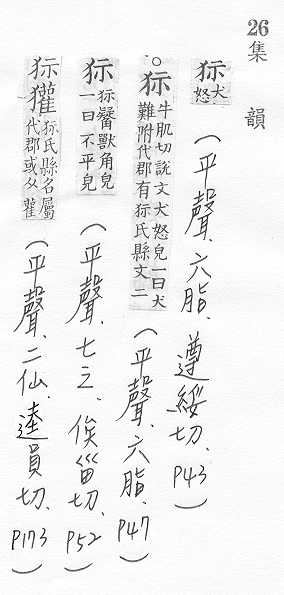 26集韻
狋犬怒(平聲、六脂、遵綏切、P43)
○狋牛肌切說文犬怒皃一曰犬難附代郡有狋氏縣文二(平聲、六脂、P47)
狋狋觺獸角皃一曰不平皃(平聲、七之、俟甾切、P52)
狋㹕狋氏縣名屬代郡或从雚(平聲、二仙、逵員切、P173)